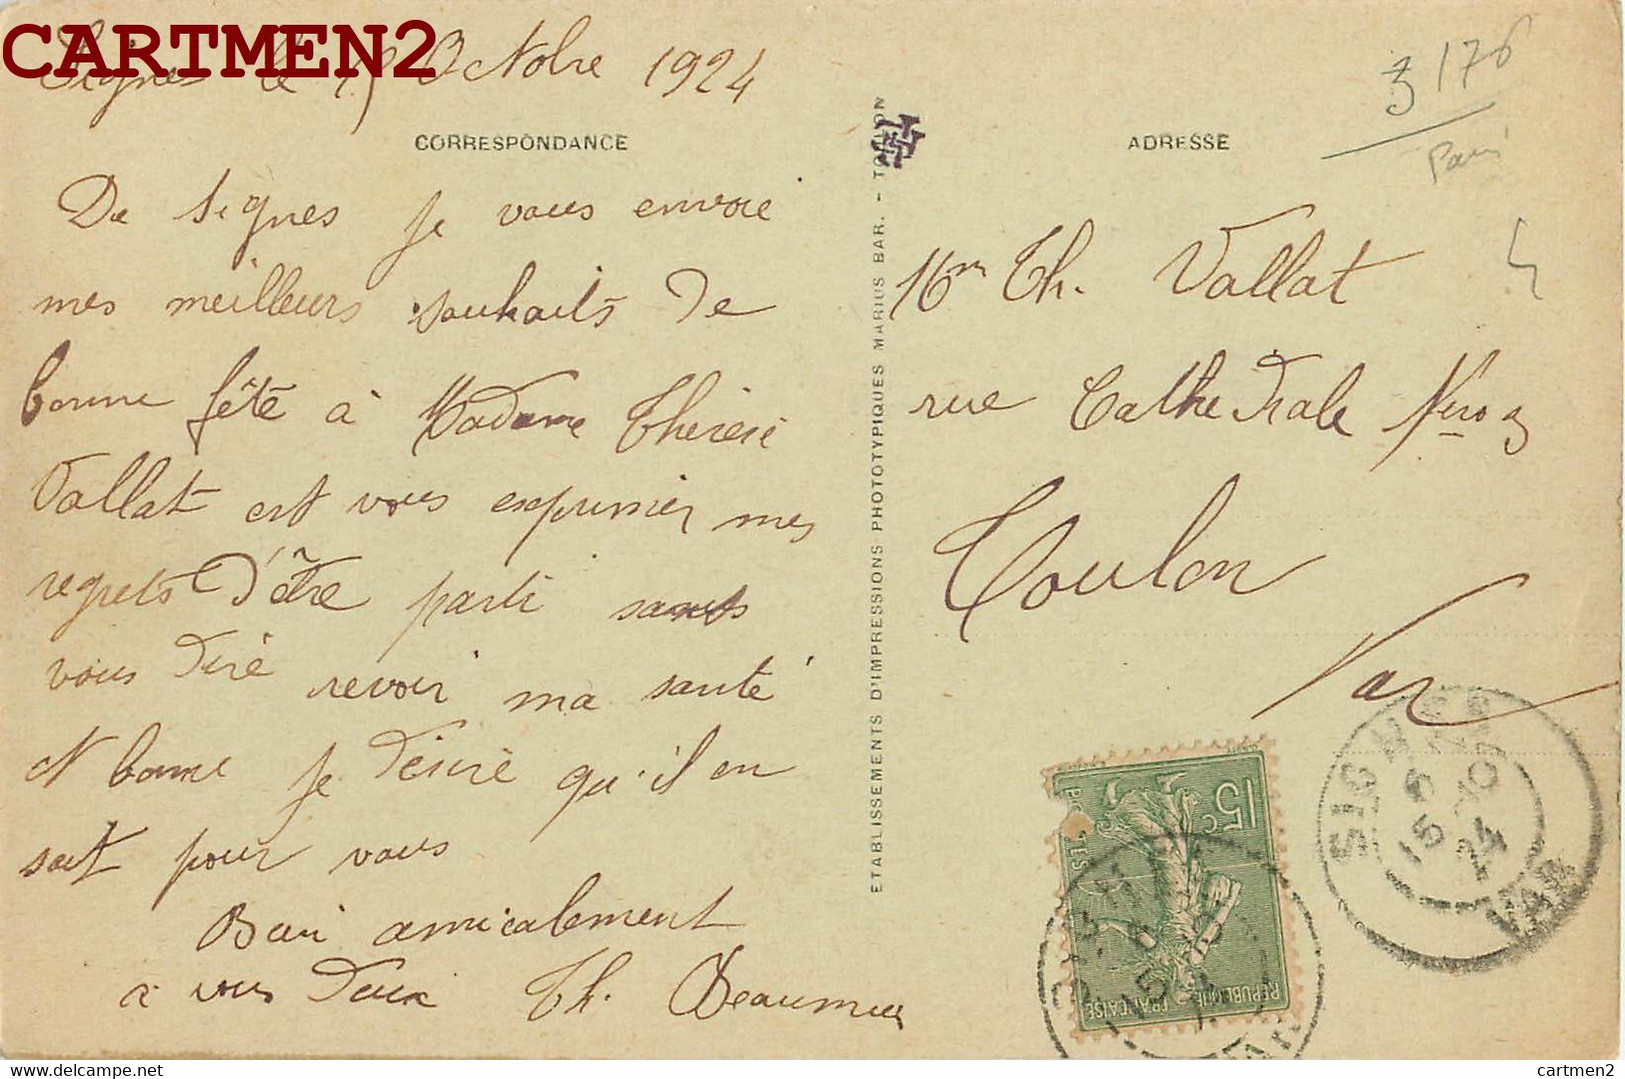 CARTMEN2
Signes le 15 Octobre 1924
CORRESPONDANCE
De Signes je vous envoie
mes meilleurs souhaits de
bonne fête à Madame Thérèse
Vallat est vous exprimer mes
regrets d'être parti sans
vous dire revoir ma santé
est bonne je désire qu'il en
soit pour vous
amicalement
à vous deux Th.
ETABLISSEMENTS D'IMPRESSIONS PHOTOTYPIQUES MARIUS BAR. - TOULON
3176
Paris
ADRESSE
Th. Vallat
rue Cathedrale
Toulon
Var
15c
POSTES
REPUBLIQUE FRANÇAISE
SIGNES
15 10
24
VAR
delcampe.net
cartmen2